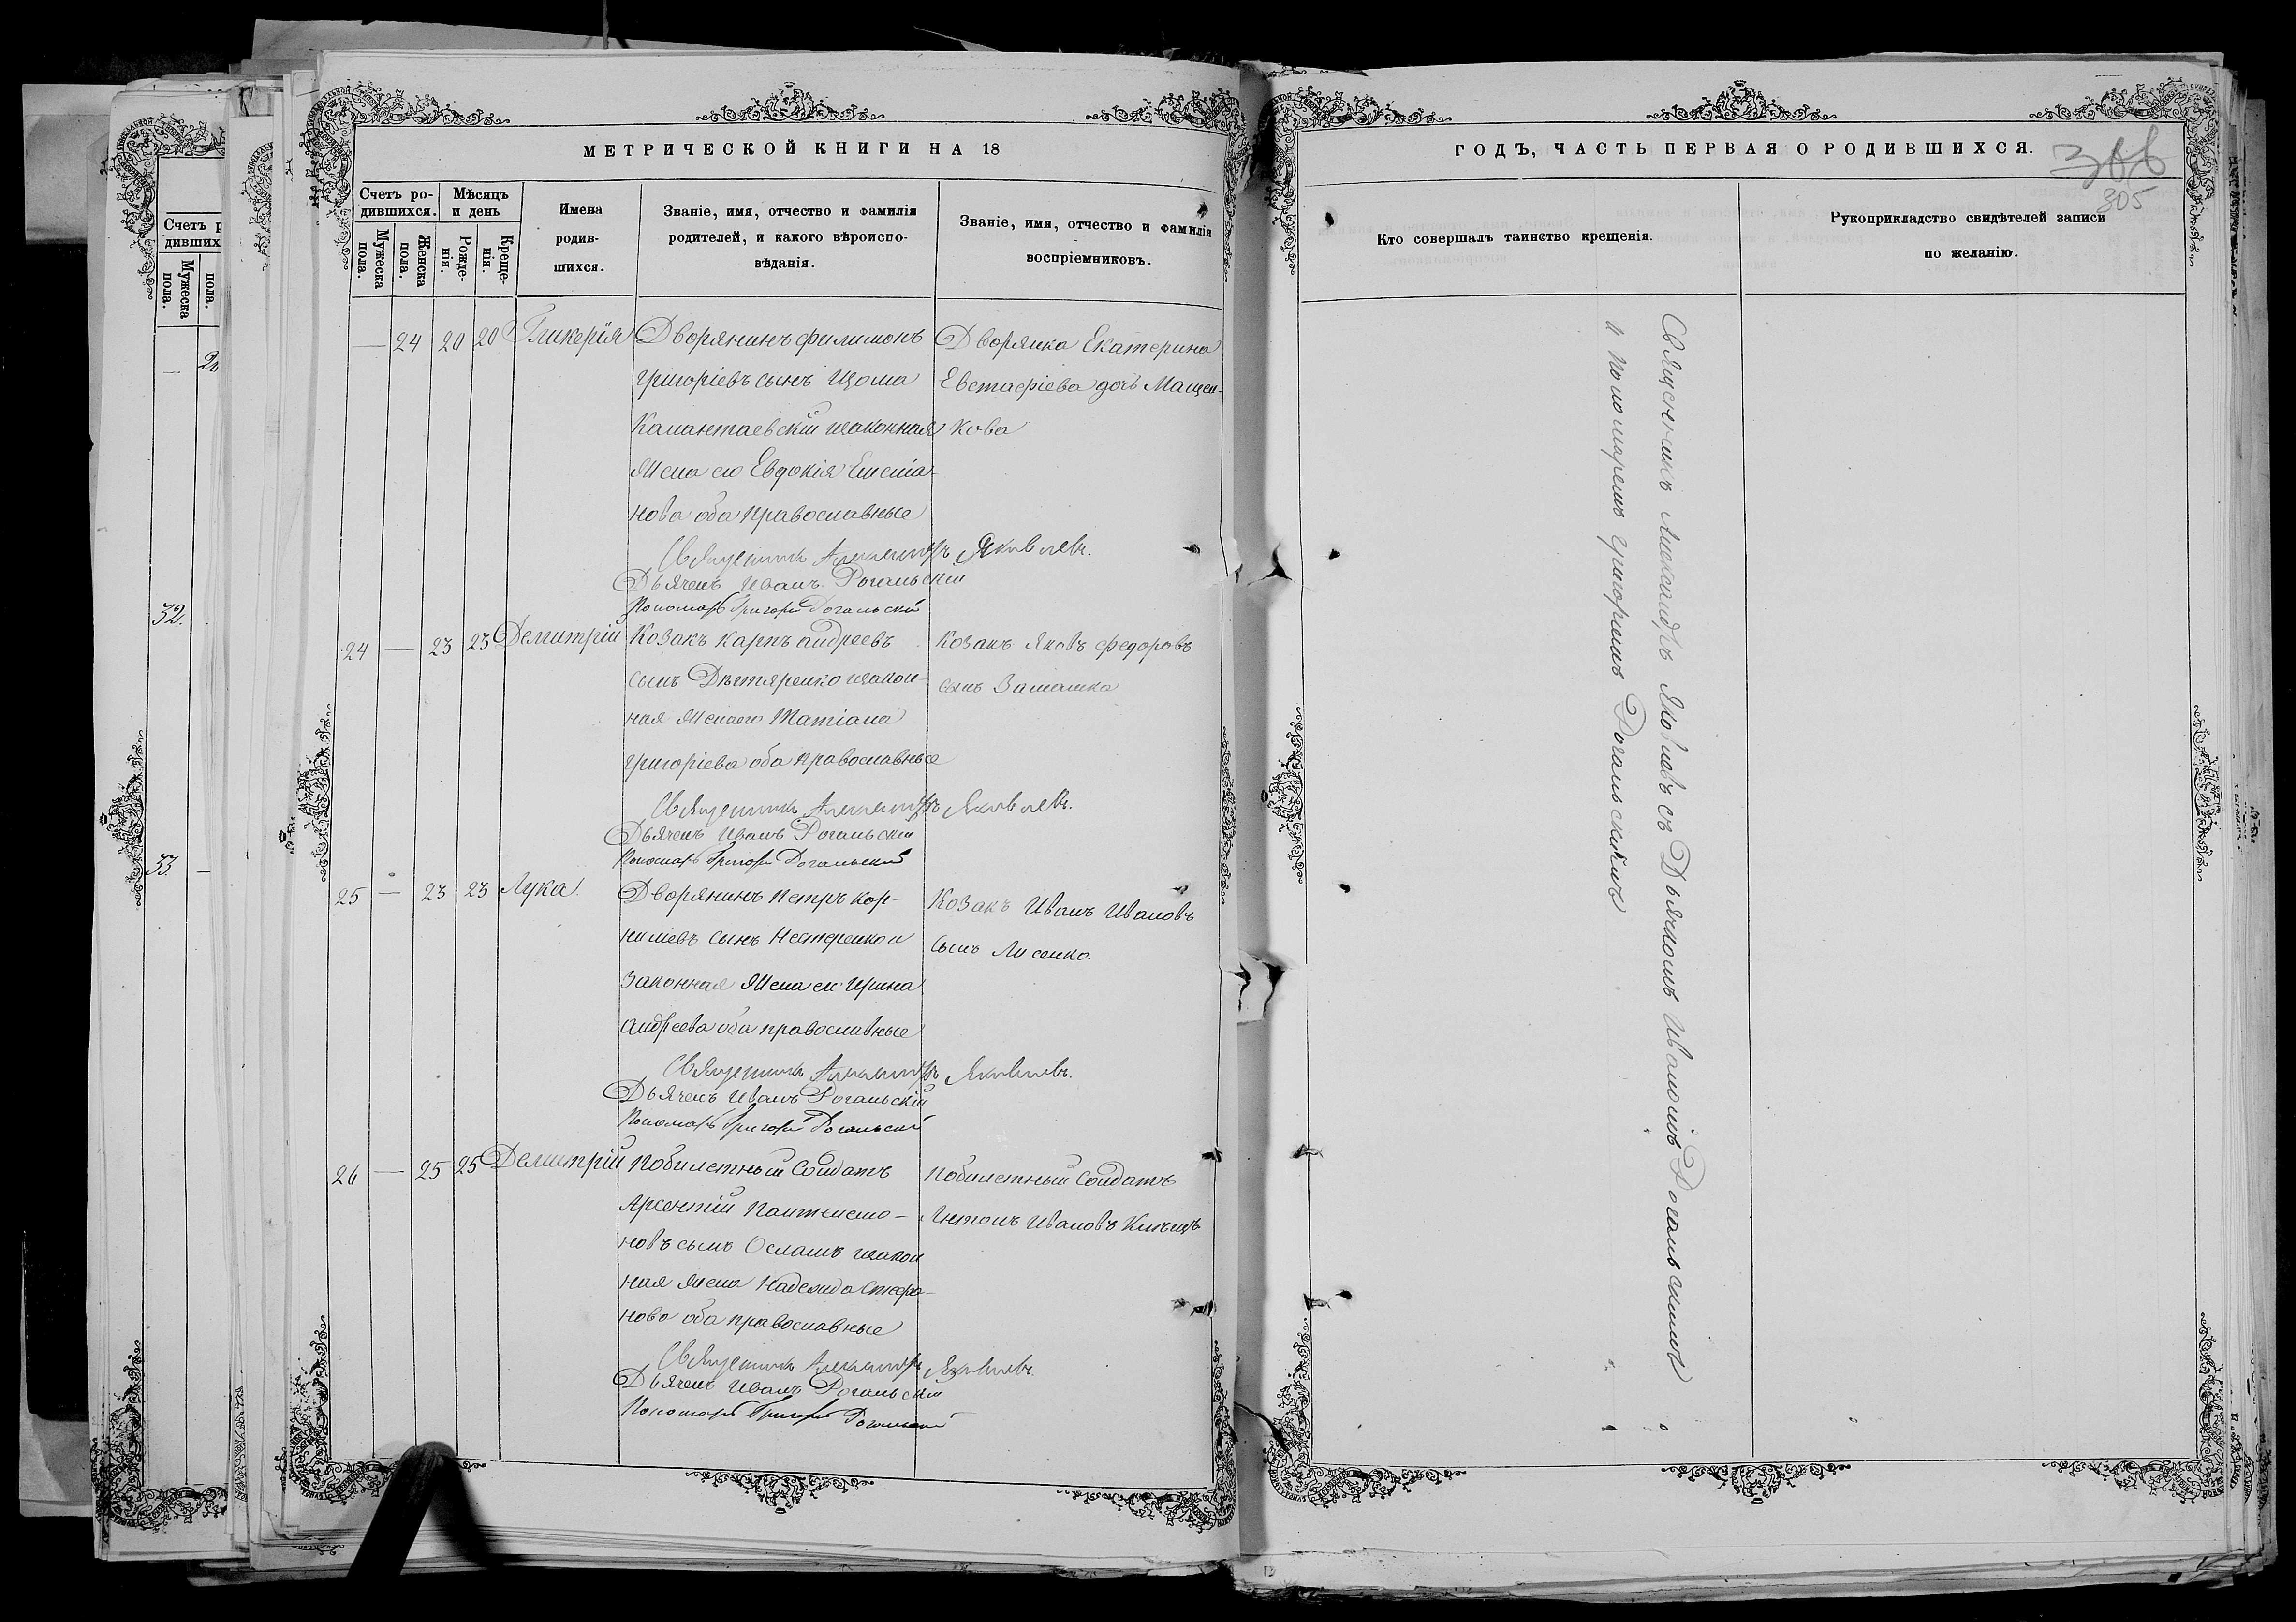 МЕТРИЧЕСКОЙ КНИГИ НА 18
Счетъ ро-
дившихся.
Мужеска
пола.
Женска
пола.
Мѣсяцъ
и день
Рожде-
нія.
Креще-
нія.
Имена
родив-
шихся.
Званіе, имя, отчество и фамилія
родителей, и какого вѣроиспо-
вѣданія.
Званіе, имя, отчество и фамилія
воспріемниковъ.
— 24 20 20 Гликерія
Дворянинъ филимонъ
григоріевъ сынъ
законная
Жена его Евдокія
нова оба православные
Дворянка Екатерина
Евстафіева дочь Мащен-
кова
Священникъ Александръ Яковлевъ.
Дьячекъ Иванъ Рогальскій
Пономарь Григорій Рогальскій
24 — 23 23 Демитрій
Козакъ карпъ андреевъ
сынъ Дегтяренко изакон-
ная Женаего Татіана
григоріева оба православные
Козакъ Яковъ федоровъ
сынъ
Священникъ Александръ Яковлевъ.
Дьячекъ Иванъ Рогальскій
Пономарь Григорій Рогальский
25 — 23 23 Лука
Дворянинъ петръ кор-
ниліевъ сынъ Нестеренко и
законная Жена ег Ирина
андреева оба православные
Козакъ Иванъ Ивановъ
сынъ Лисенко.
Священникъ Александръ Яковлевъ.
Дьячекъ Иванъ Рогальскій
Пономарь Григорій Рогальскій
26 — 25 25 Демитрій
побилетный Солдатъ
Арсентій Пантелемо-
новъ сынъ изакон
ная Жена Надежда Стефа-
нова оба православные
побилетный Солдатъ
Антонъ Ивановъ
Священникъ Александръ Яковлевъ.
Дьячекъ Иванъ Рогальскій
Пономарь Григорій Рогальский
ГОДЪ, ЧАСТЬ ПЕРВАЯ О РОДИВШИХСЯ.
305
Кто совершалъ таинство крещенія.
Рукоприкладство свидѣтелей записи
по желанію.
Священникъ Александръ Яковлевъ съ Дьячкомъ Иваномъ Рогальскимъ
и пономаремъ григоріемъ Рогальскимъ
Счетъ р
дивших
Мужеска
пола.
пола.
32.
33.